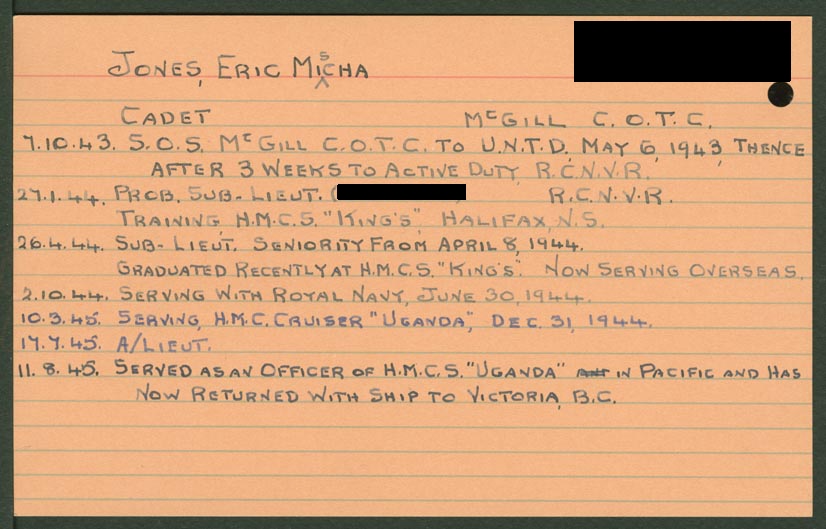 JONES, ERIC MISCHA
CADET McGILL C.O.T.C.
7.10.43. S.O.S. McGILL C.O.T.C. TO U.N.T.D. MAY 6, 1943, THENCE
AFTER 3 WEEKS TO ACTIVE DUTY, R.C.N.V.R.
27.1.44. PROB. SUB-LIEUT. ( R.C.N.V.R.
TRAINING, H.M.C.S. "KING'S", HALIFAX, N.S.
26.4.44. SUB-LIEUT. SENIORITY FROM APRIL 8, 1944.
GRADUATED RECENTLY AT H.M.C.S. "KING'S". NOW SERVING OVERSEAS.
2.10.44. SERVING WITH ROYAL NAVY, JUNE 30, 1944.
10.3.45. SERVING, H.M.C. CRUISER "UGANDA", DEC. 31, 1944.
17.7.45. A/LIEUT.
11.8.45. SERVED AS AN OFFICER OF H.M.C.S. "UGANDA" IN PACIFIC AND HAS
NOW RETURNED WITH SHIP TO VICTORIA, B.C.